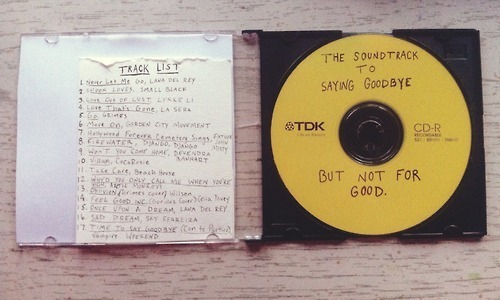 TRACK LIST
1. Never Let Me Go, LANA DEL REY
2. MOON LOVES, SMALL BLACK
3. Love Out of LUST, LIKKE LI
4. Love That's Gone, LA SERA
5. GO, GRIMES
6. Move On, GARDEN CITY MOVEMENT
7. Hollywood Forever Cemetery Sings, FATHER JOHN MISTY
8. FIREWATER, DJANGO, DJANGO
9. WON'T YOU COME HOME, DEVENDRA BANHART
10. Villain, CocoRosie
11. Take Care, Beach House
12. WHY'D YOU ONLY CALL ME WHEN YOU'RE
13. OBLIVION (Grimes cover) Wilsen
14. FEEL GOOD INC. (Gorillaz Cover) Celia Pavey
15. ONCE UPON A DREAM, LANA DEL REY
16. SAD DREAM, SKY FERREIRA
17. TIME TO SAY GOODBYE (Con te Partiro)
Vampire WEEKEND
THE SOUNDTRACK
TO
SAYING GOODBYE
TDK
Life on Record
CD-R
RECORDABLE
BUT NOT FOR
GOOD.